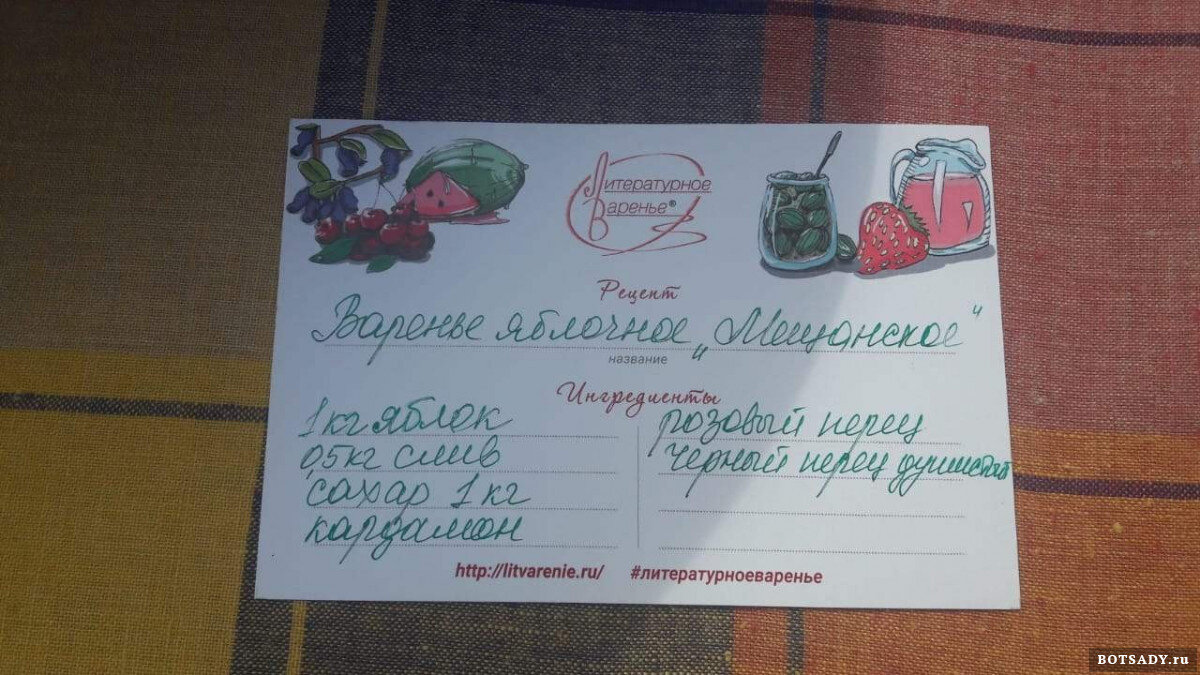 Литературное
Варенье®
Рецепт
Варенье яблочное „Мещанское"
название
Ингредиенты
1 кг яблок
0,5 кг слив
сахар 1 кг
кардамон
розовый перец
чёрный перец душистый
http://litvarenie.ru/ #литературноеваренье
BOTSADY.ru